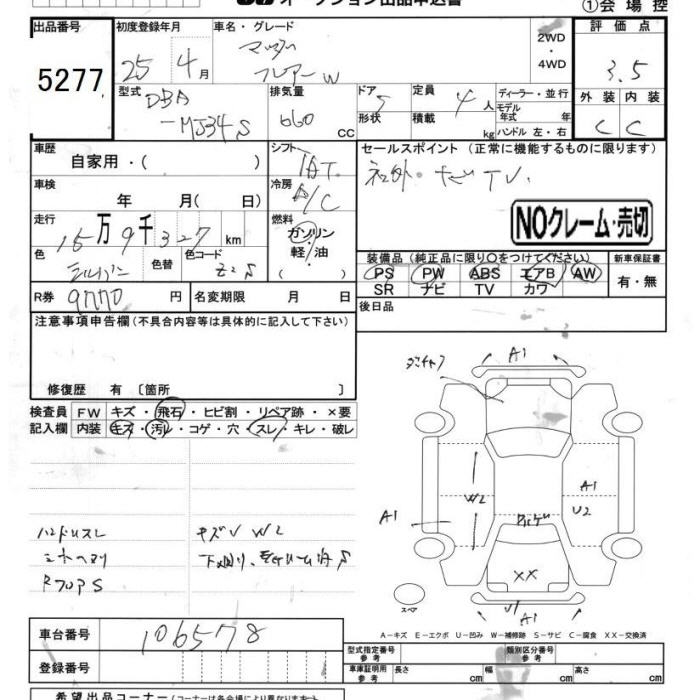 オークション出品申込書
①会場控
出品番号 5277
初度登録年月 25 4月
車名・グレード マツダ フレアー W
2WD・4WD
評価点 3.5
型式 DBA -MJ34S
排気量 660 cc
ドア 5
形状
定員 4人
積載 kg
ディーラー・並行
モデル年式 年
ハンドル 左・右
外装 C
内装 C
車歴 自家用・( )
シフト IAT.
冷房 A/C
車検 年 月( 日)
走行 15万9千327km
燃料 ガソリン 軽・油 ( )
色 シルバー
色替
色コード Z2S
R券 9770円
名変期限 月 日
セールスポイント (正常に機能するものに限ります)
社外・ナビTV.
NOクレーム・売切
装備品(純正品に限り○をつけてください)
新車保証書
PS PW ABS エアB AW
SR ナビ TV カワ
有・無
後日品
注意事項申告欄(不具合内容等は具体的に記入して下さい)
修復歴 有 〔箇所 〕
検査員記入欄
FW キズ・飛石・ヒビ割・リペア跡・×要
内装 キズ・汚レ・コゲ・穴・スレ・キレ・破レ
ハンドルスレ
キズV W2
A1
A1
W2
A1
U2
XX
A1
スペア
A－キズ E－エクボ U－凹み W－補修跡 S－サビ C－腐食 XX－交換済
車台番号 106578
登録番号
型式指定番号 参考
類別区分番号 参考
車庫証明用 参考 長さ cm 幅 cm 高さ cm
希望出品コーナー(コーナーは各会場により異なります)